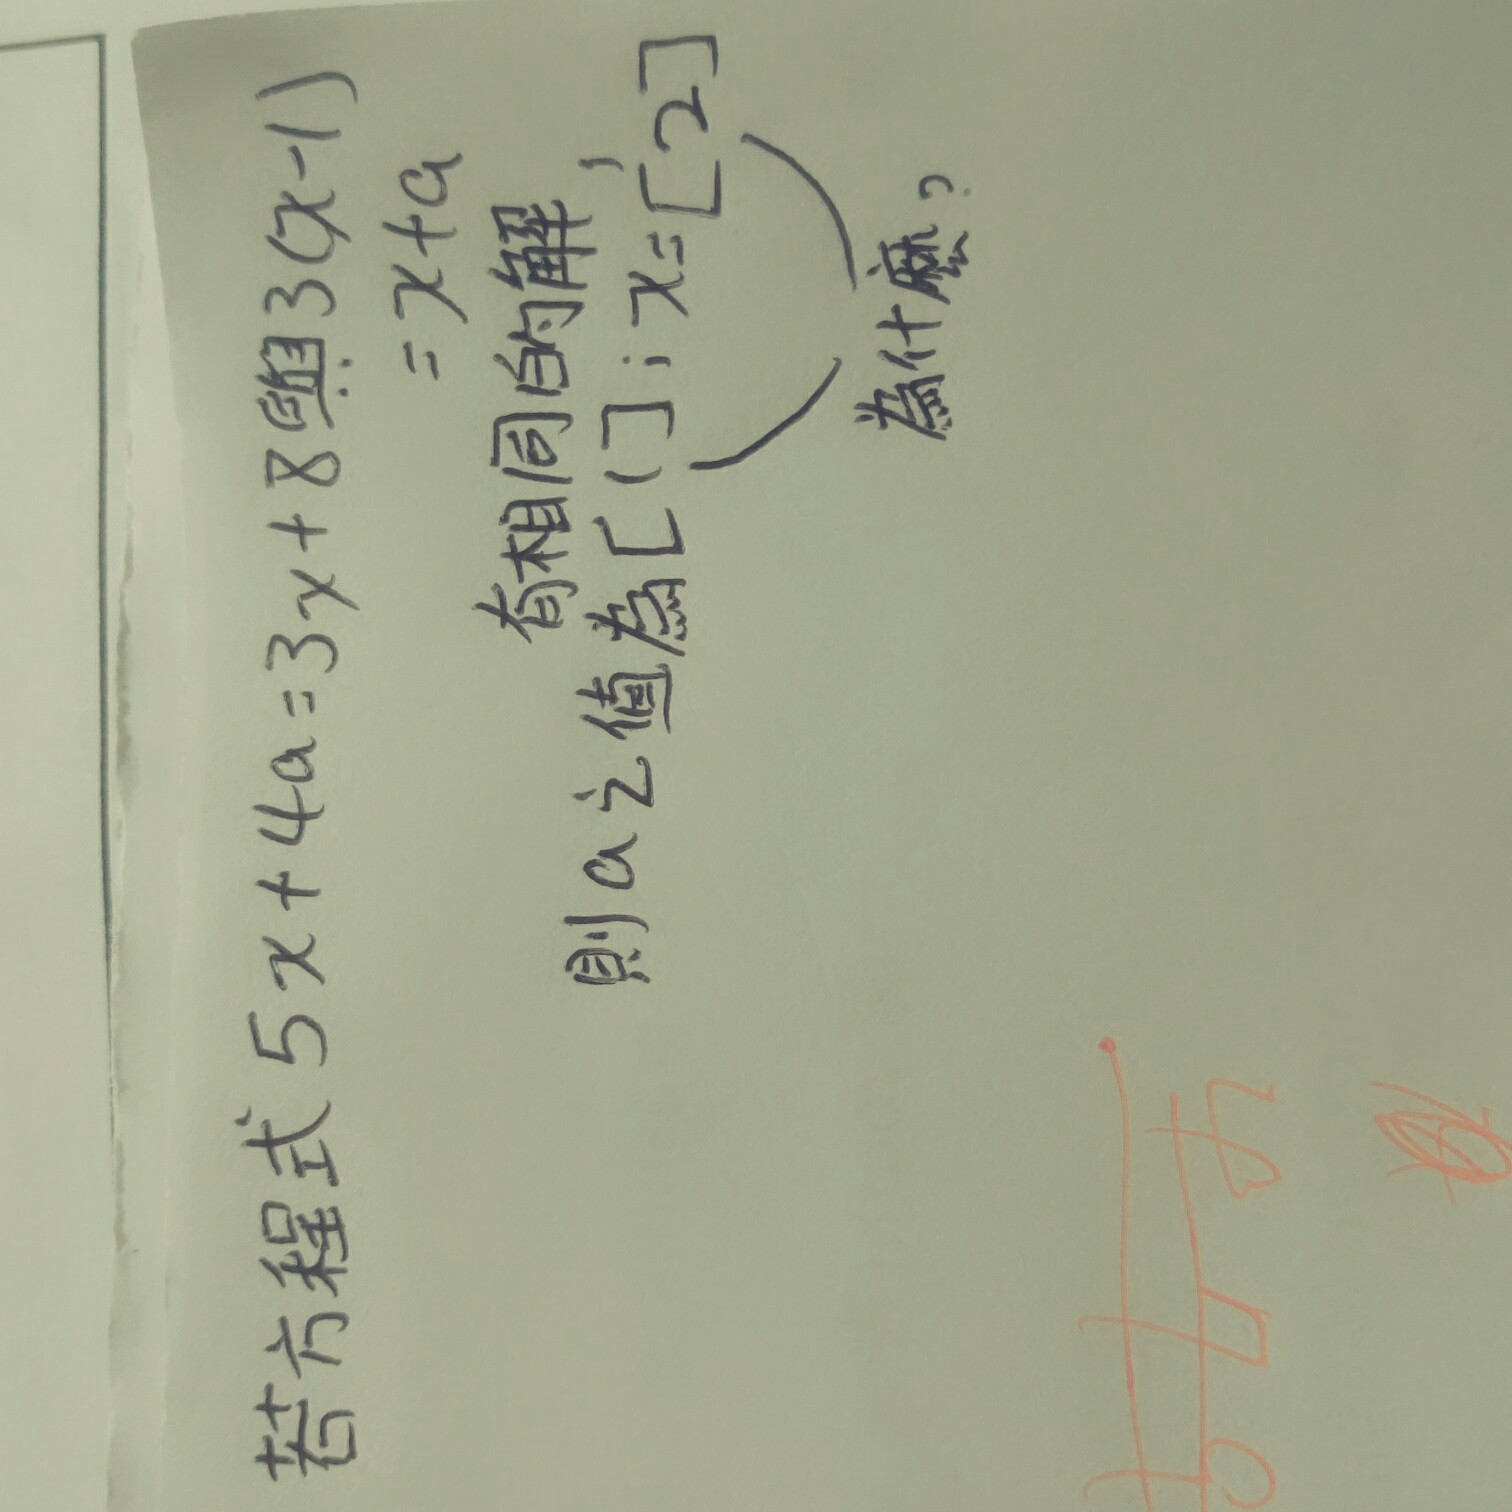 若方程式5x+4a=3x+8與3(x-1)
=x+a
有相同的解,
則a之值為[1];x=[2]
為什麼?